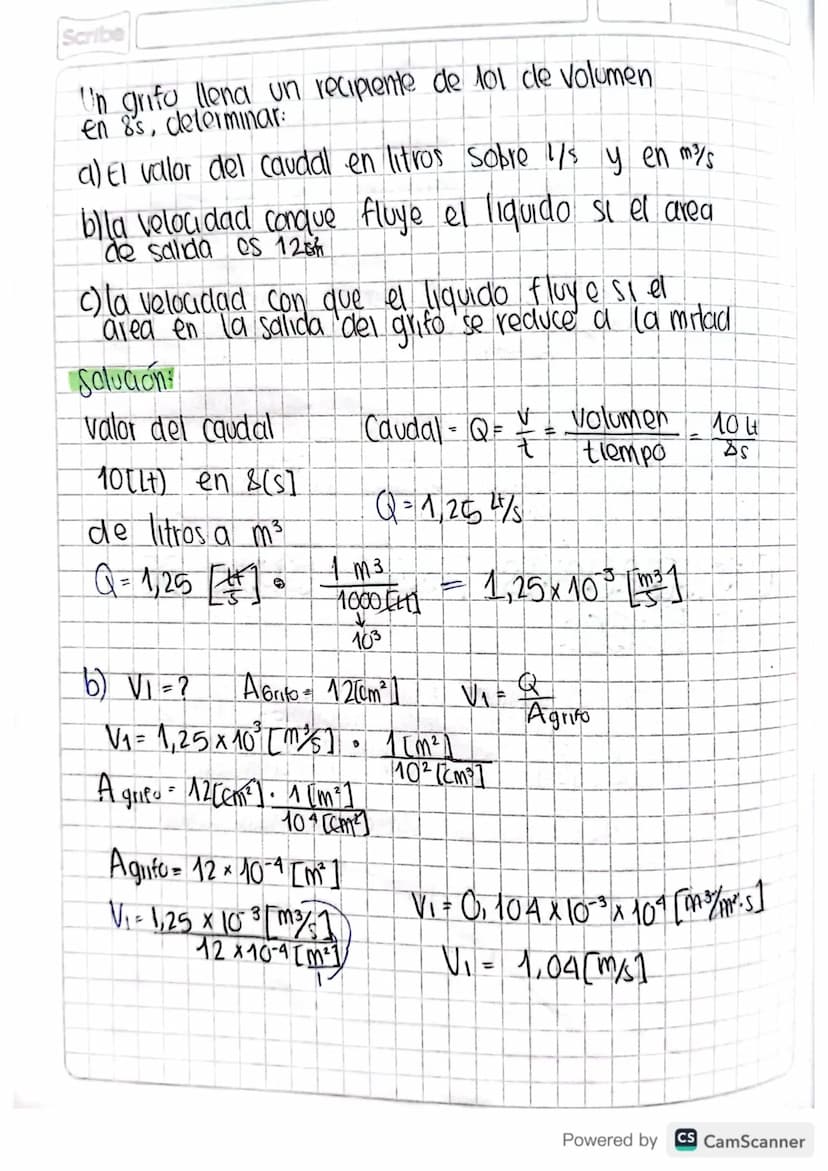 Scribe
Un grifo llena un recipiente de 10l de volumen
en 8s, determinar:
a) El valor del caudal en litros sobre l/s y en m³/s
b) la velocidad conque fluye el liquido si el area
de salida es 12
c) la velocidad con que el liquido fluye si el
area en la salida del grifo se reduce a la mitad
Solución:
Valor del caudal Caudal = Q = V/t = Volumen/tiempo = 10 Lt/8s
10[Lt) en 8(s]
Q = 1,25 Lt/s
de litros a m³
Q = 1,25 [Lt/s] • 1 m³/1000 [Lt] = 1,25 x 10⁻³ [m³/s]
↓
10³
b) V1 = ? AGrifo = 12[cm²] V1 = Q/Agrifo
V1 = 1,25 x 10³ [m³/s] • 1[m²]/10² [cm³]
A grifo = 12[cm²] • 1 [m²]/10⁴ [cm²]
Agrifo = 12 x 10⁻⁴ [m²]
V1 = 1,25 x 10⁻³ [m³/s]/12 x 10⁻⁴ [m²] V1 = 0,104 x 10⁻³ x 10⁴ [m³/m².s]
1
V1 = 1,04 [m/s]
Powered by CS CamScanner